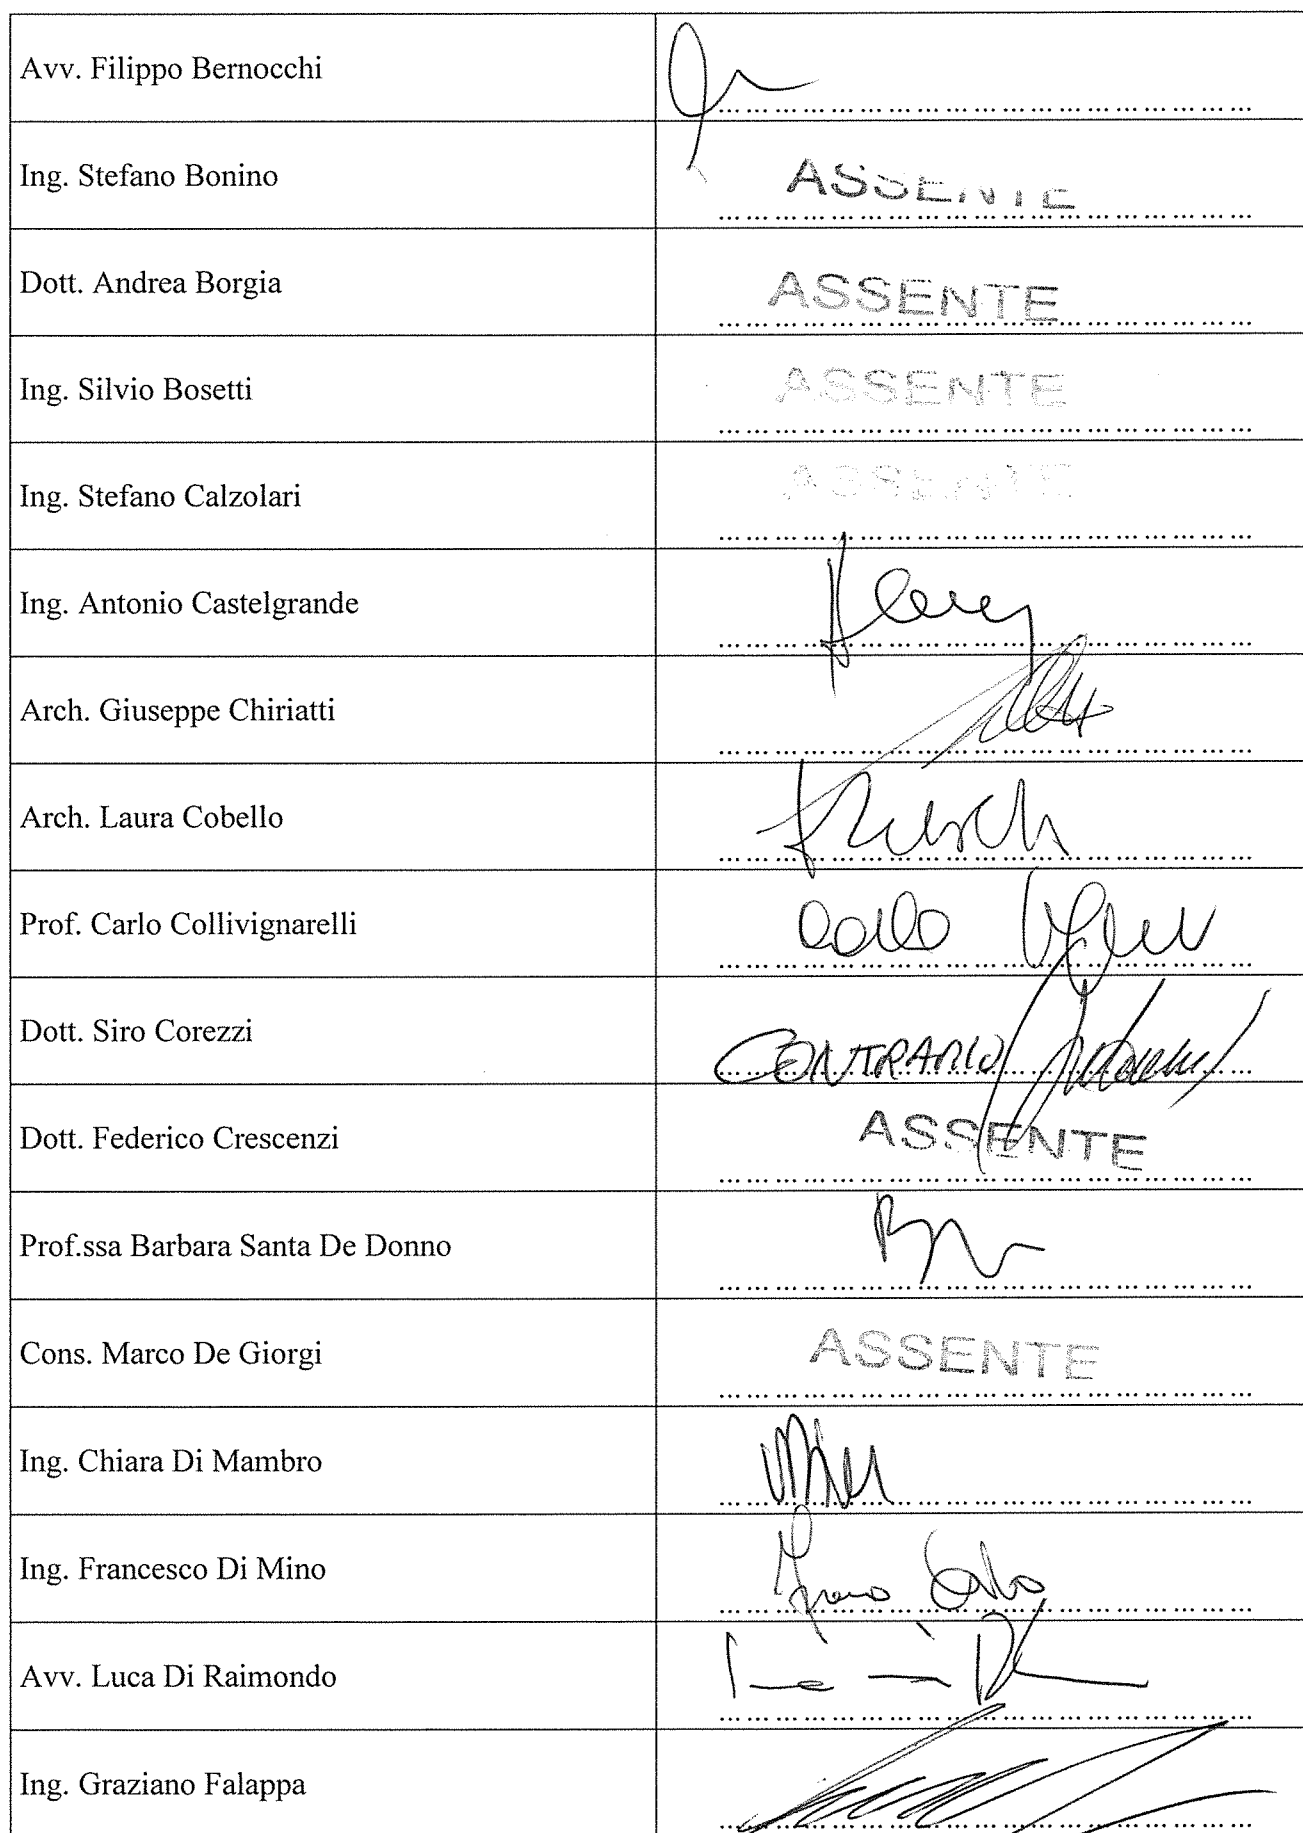 Avv. Filippo Bernocchi
Ing. Stefano Bonino ASSENTE
Dott. Andrea Borgia ASSENTE
Ing. Silvio Bosetti ASSENTE
Ing. Stefano Calzolari ASSENTE
Ing. Antonio Castelgrande
Arch. Giuseppe Chiriatti
Arch. Laura Cobello
Prof. Carlo Collivignarelli
Dott. Siro Corezzi CONTRARIO
Dott. Federico Crescenzi ASSENTE
Prof.ssa Barbara Santa De Donno
Cons. Marco De Giorgi ASSENTE
Ing. Chiara Di Mambro
Ing. Francesco Di Mino
Avv. Luca Di Raimondo
Ing. Graziano Falappa